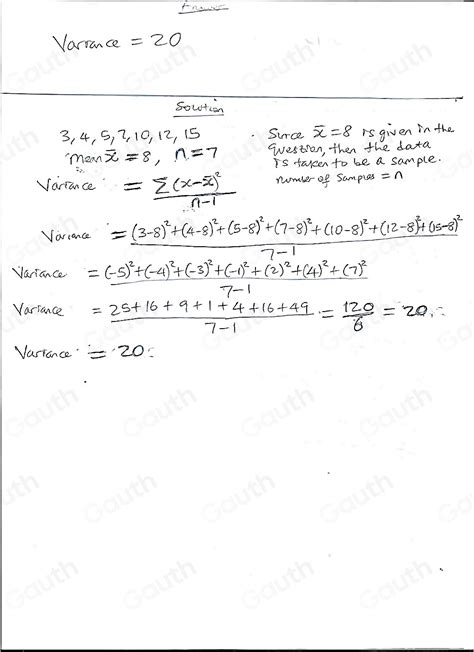 Answer
Variance = 20
Solution
3, 4, 5, 7, 10, 12, 15
mean x̄ = 8, n = 7
Since x̄ = 8 is given in the
question, then the data
is taken to be a sample.
number of samples = n
Variance = Σ(x-x̄)²/n-1
Variance = (3-8)²+(4-8)²+(5-8)²+(7-8)²+(10-8)²+(12-8)²+(15-8)²/7-1
Variance = (-5)²+(-4)²+(-3)²+(-1)²+(2)²+(4)²+(7)²/7-1
Variance = 25+16+9+1+4+16+49/7-1 = 120/6 = 20.
Variance = 20.
Gauth